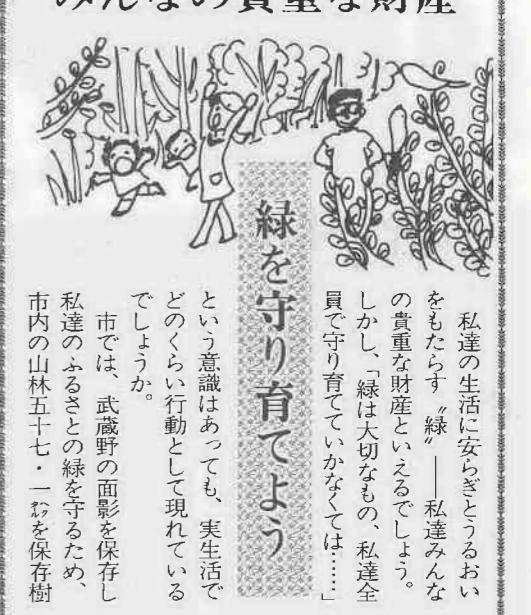 みんなの貴重な財産
緑を守り育てよう
私達の生活に安らぎとうるおい
をもたらす〝緑〟――私達みんな
の貴重な財産といえるでしょう。
しかし、「緑は大切なもの、私達全
員で守り育てていかなくては……」
という意識はあっても、実生活で
どのくらい行動として現れている
でしょうか。
市では、武蔵野の面影を保存し
私達のふるさとの緑を守るため、
市内の山林五十七・一㌶を保存樹